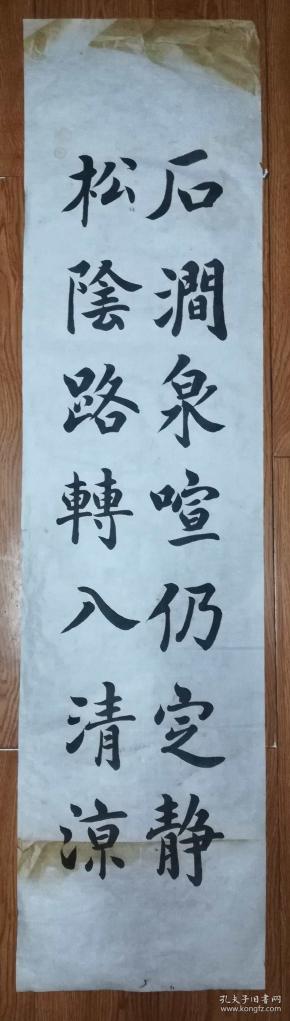 石澗泉喧仍定静
松陰路轉入清涼
孔夫子旧书网
www.kongfz.com